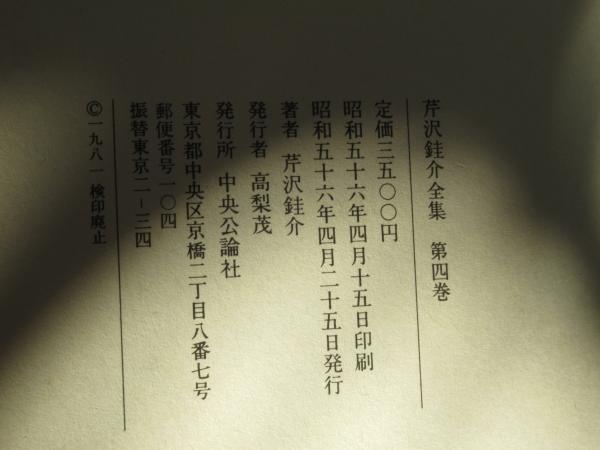 芹沢銈介全集　第四巻
定価三五〇〇円
昭和五十六年四月十五日印刷
昭和五十六年四月二十五日発行
著者　芹沢銈介
発行者　高梨茂
発行所　中央公論社
東京都中央区京橋二丁目八番七号
郵便番号一〇四
振替東京二－三四
©一九八一　検印廃止